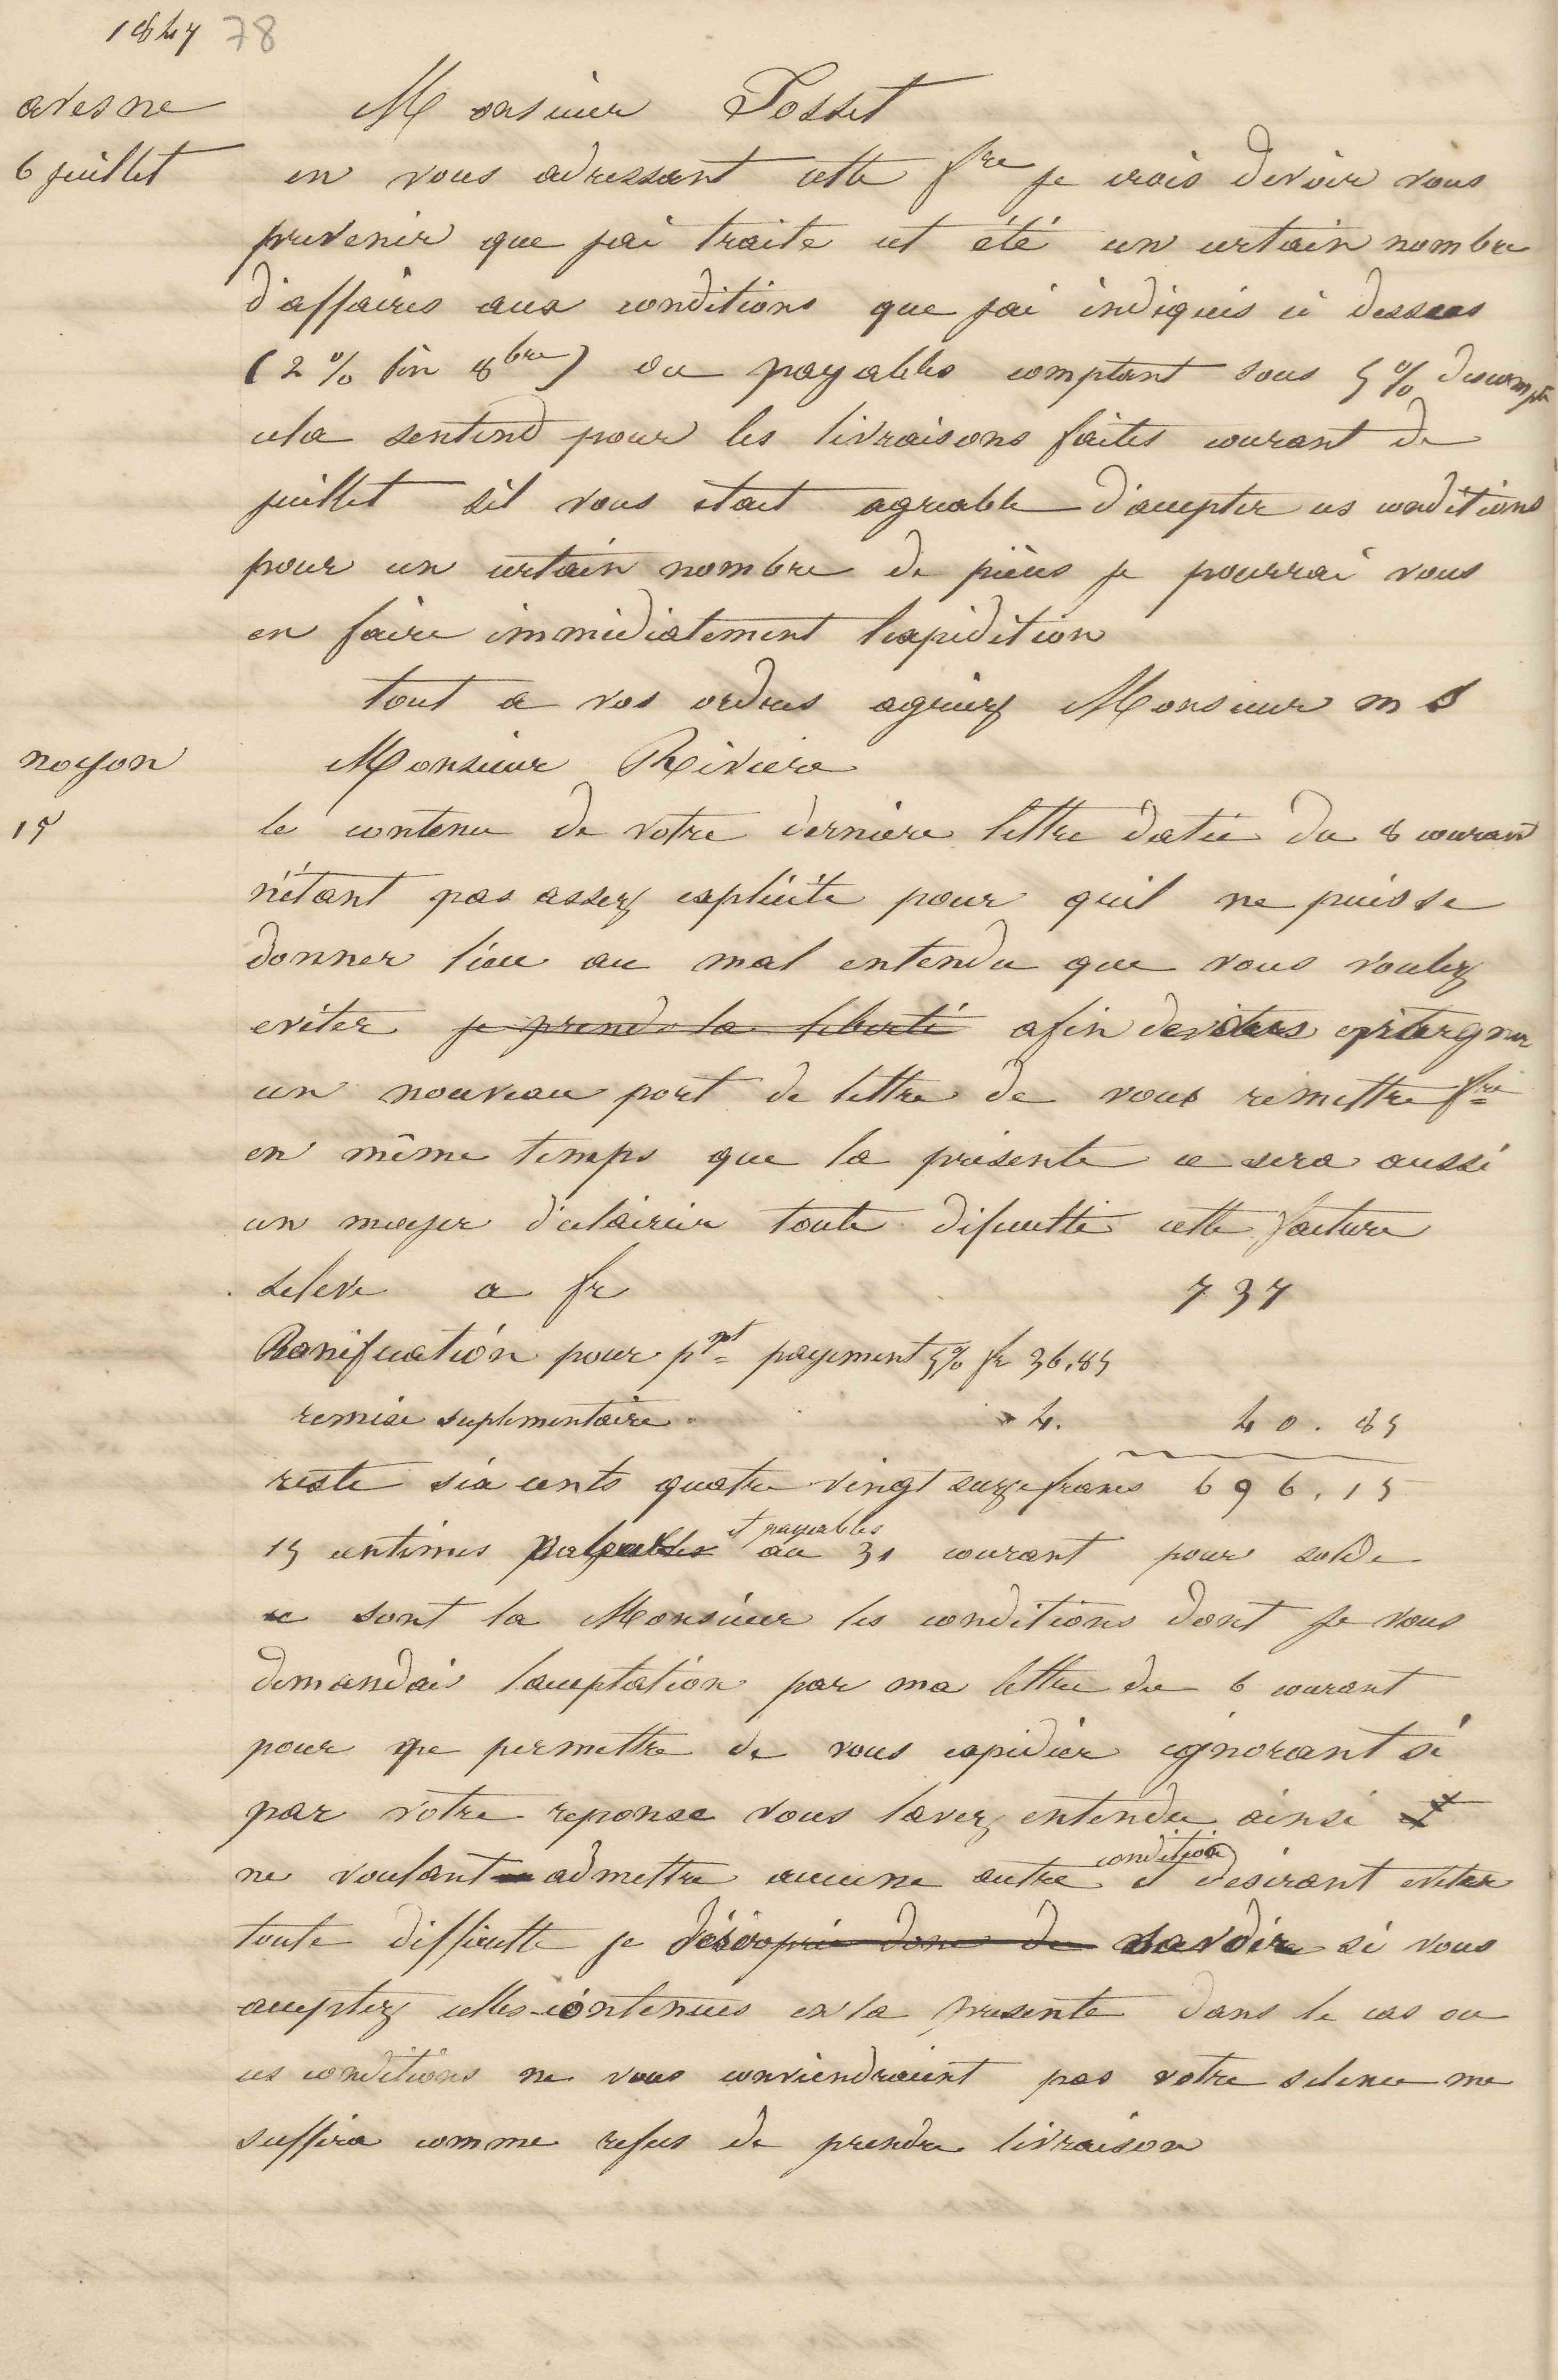 1847 78
avesne Monsieur Posset
6 juillet en vous adressant cette fre je crois devoir vous
prevenir que jai traite cet été un certain nombre
d'affaires aux conditions que jai indiqués ci dessus
(2 % fin 8bre) ou payables comptant sous 5 % descompte
cela sentend pour les livraisons faites courant de
juillet sil vous etait agreable d'accepter ces conditions
pour un certain nombre de pièces je pourrai vous
en faire immédiatement lexpédition
tout a vos ordres agréez Monsieur m s
noyon Monsieur Riviere
15 le contenu de votre derniere lettre datée du 8 courant
n'étant pas assez explicite pour quil ne puisse
donner lieu au mal entendu que vous voulez
eviter je prends la liberté afin de epargner
un nouveau port de lettre de vous remettre fre
en même temps que la présente ce sera aussi
un moyen d'eclaircir toute dificulté cette facture
seleve a fr 737
Bonification pour pnt payement 5% fr 36,85
remise suplementaire " 4. 40.85
reste six cents quatre vingt seize francs 696,15
15 centimes et payables au 31 courant pour solde
ce sont la Monsieur les conditions dont je vous
demandai lacceptation par ma lettre du 6 courant
pour me permettre de vous expédier ignorant si
par votre reponse vous lavez entendu ainsi et
ne voulant admettre aucune autre condition et desirant eviter
toute difficulte je donc de savoir si vous
acceptez celles contenues en la presente dans le cas ou
ces conditions ne vous conviendraient pas votre silence me
suffira comme refus de prendre livraison